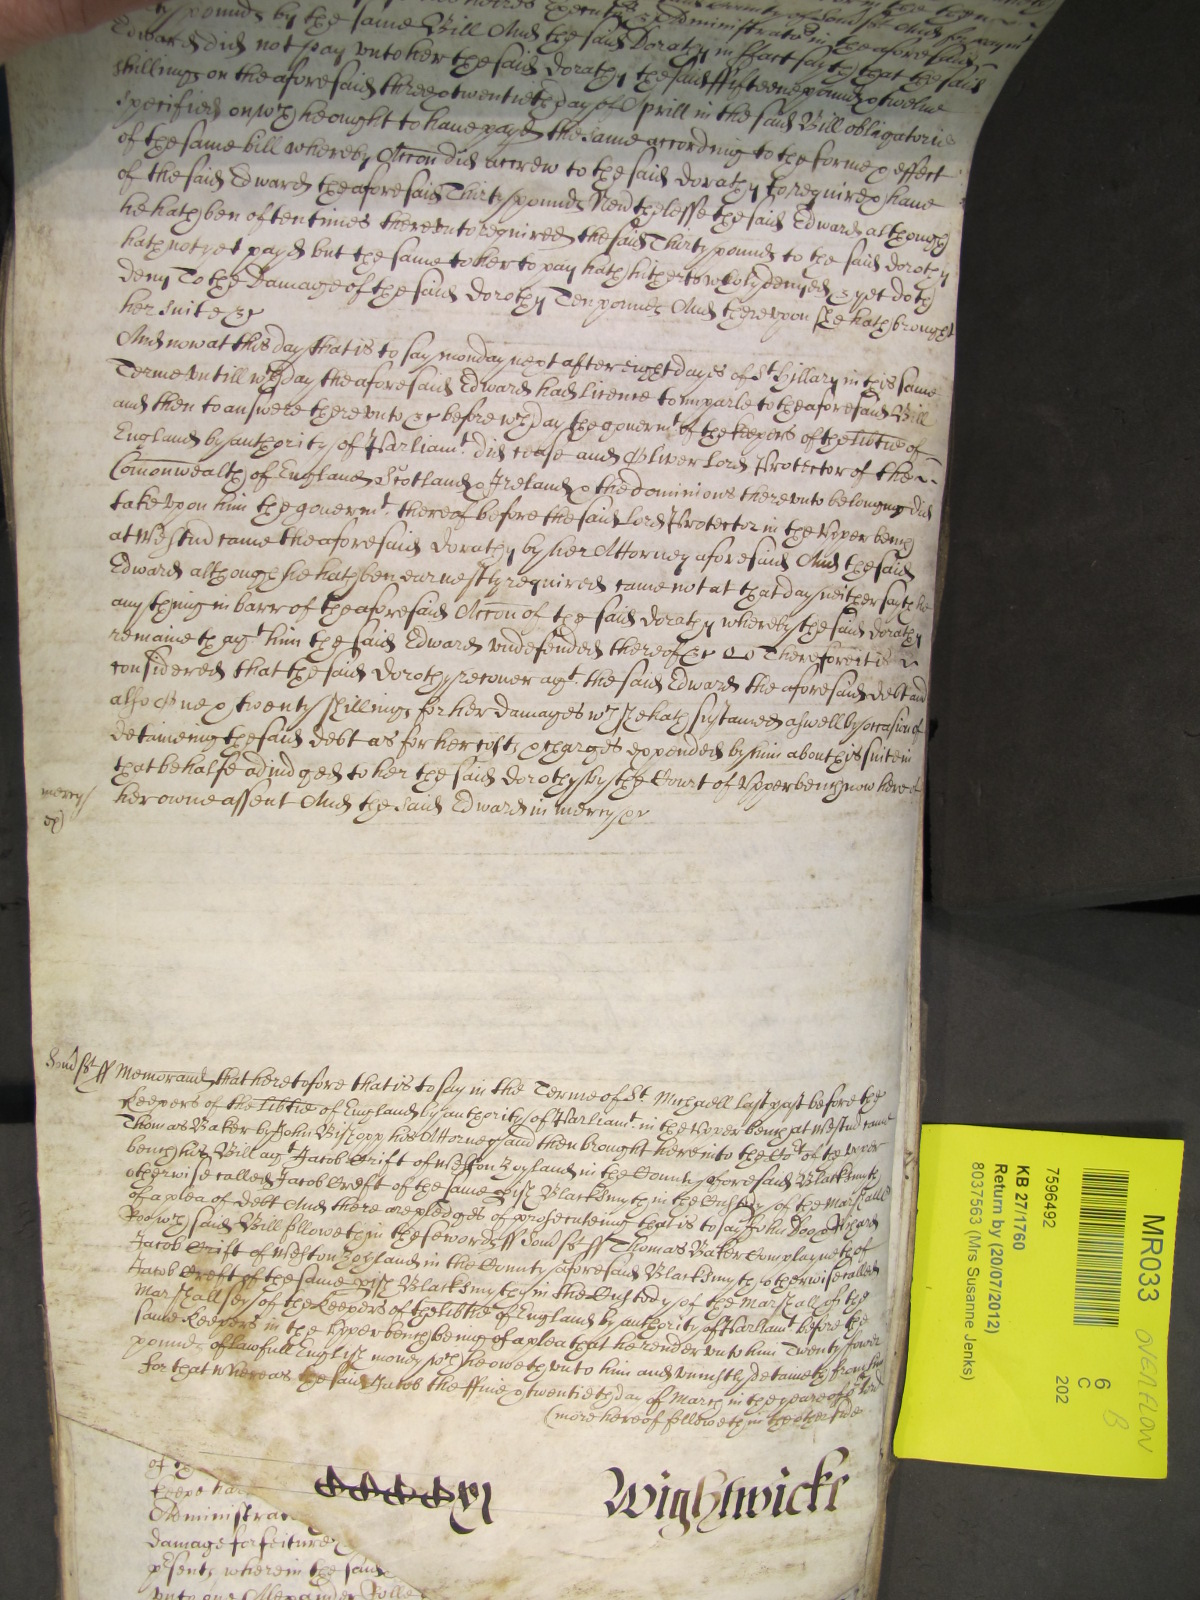 pounds by the same Bill And the said Dorathy in ffact sayth that the said
Edward did not pay unto her the said Dorathy the said ffifteene pounds & twelve
shillings on the aforesaid three & twentieth day of Aprill in the said Bill obligatorie
specified on wch he ought to have payd the same according to the forme & effect
of the same bill whereby Accon did accrew to the said Dorathy to require & have
of the said Edward the aforesaid Thirty pounds Neverthelesse the said Edward although
he hath ben oftentimes thereunto required the said Thirty pounds to the said Dorothy
hath not yet payd but the same to her to pay hath hitherto wholy denyed & yet doth
deny To the Damage of the said Dorothy Ten pounds And thereupon she hath brought
her suite &c
And now at this day that is to say monday next after eight dayes of St Hillary in this same
Terme untill wch day the aforesaid Edward had licence to imparle to the aforesaid Bill
and then to answere thereunto &c before wch day the governmt of the Keepers of the libtie of
England by authority of Parliamt did cease and Oliver Lord Protector of the
Comonwealth of England Scotland & Ireland & the dominions thereunto belonging did
take upon him the governmt thereof before the said Lord Protector in the Upper bench
at Westm came the aforesaid Dorathy by her Attorney aforesaid And the said
Edward although he hath ben earnestly required came not at that day neither sayth he
any thing in barr of the aforesaid Accon of the said Dorathy whereby the said Dorathy
remaineth agt him the said Edward undefended thereof &c Therefore it is
considered that the said Dorothy recover agt the said Edward the aforesaid debt and
also One & twenty shillings for her damages wch she hath susteined aswell by occasion of
deteineing the said debt as for her costs & charges expended by him about his suite in
that behalfe adiudged to her the said Dorothy by the Court of Upper bench now here of
mercy
her owne assent And the said Edward in mercy &c
Somst ff Memorand that heretofore that is to say in the Terme of St Michaell last past before the
Keepers of the libtie of England by authority of Parliamt in the Upper bench at Westm came
Thomas Baker by John Bishopp his Attorney and then brought here into the Crt of the Upper
bench his Bill agt Jacob Crift of Weston Zoyland in the County aforesaid Blacksmyth
otherwise called Jacob Creft of the same pish Blacksmyth in the Custody of the Marshall
of a plea of debt And there are pledges of prosecuteing that is to say John Doo & Richard
Roo wch said Bill followeth in these words ff Somst ff Thomas Baker Complayneth of
Jacob Crift of Weston Zoyland in the County aforesaid Blacksmyth otherwise called
Jacob Creft of the same pish Blacksmyth in the Custody of the Marshall of the
Marshallsey of the Keepers of the libtie of England by authority of Parliamt before the
same Keepers in the Upper bench being of a plea that he render unto him Twenty fower
pounds of lawfull English money wch he oweth unto him and uniustly deteineth from him
for that Whereas the said Jacob the ffive & twentieth day of March in the yeare of or Lord
(more hereof followeth in the other side
Wightwicke
of
keepe
Administra
damage forfeiture
psents wherein the said
unto one Alexander
MR033
OVERFLOW
B
6
C
202
7596492
KB 27/1760
Return by (20/07/2012)
8037563 (Mrs Susanne Jenks)